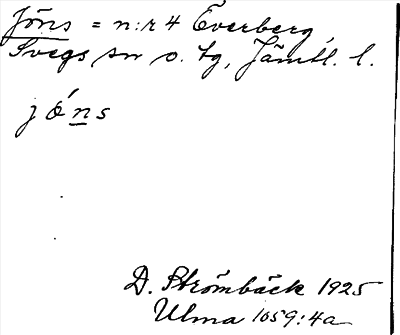 Jöns = n:r 4 Överberg,
Svegs sn o. tg, Jämtl. l.
jo᷄ńs
D. Strömbäck 1925
Ulma 1059:4a